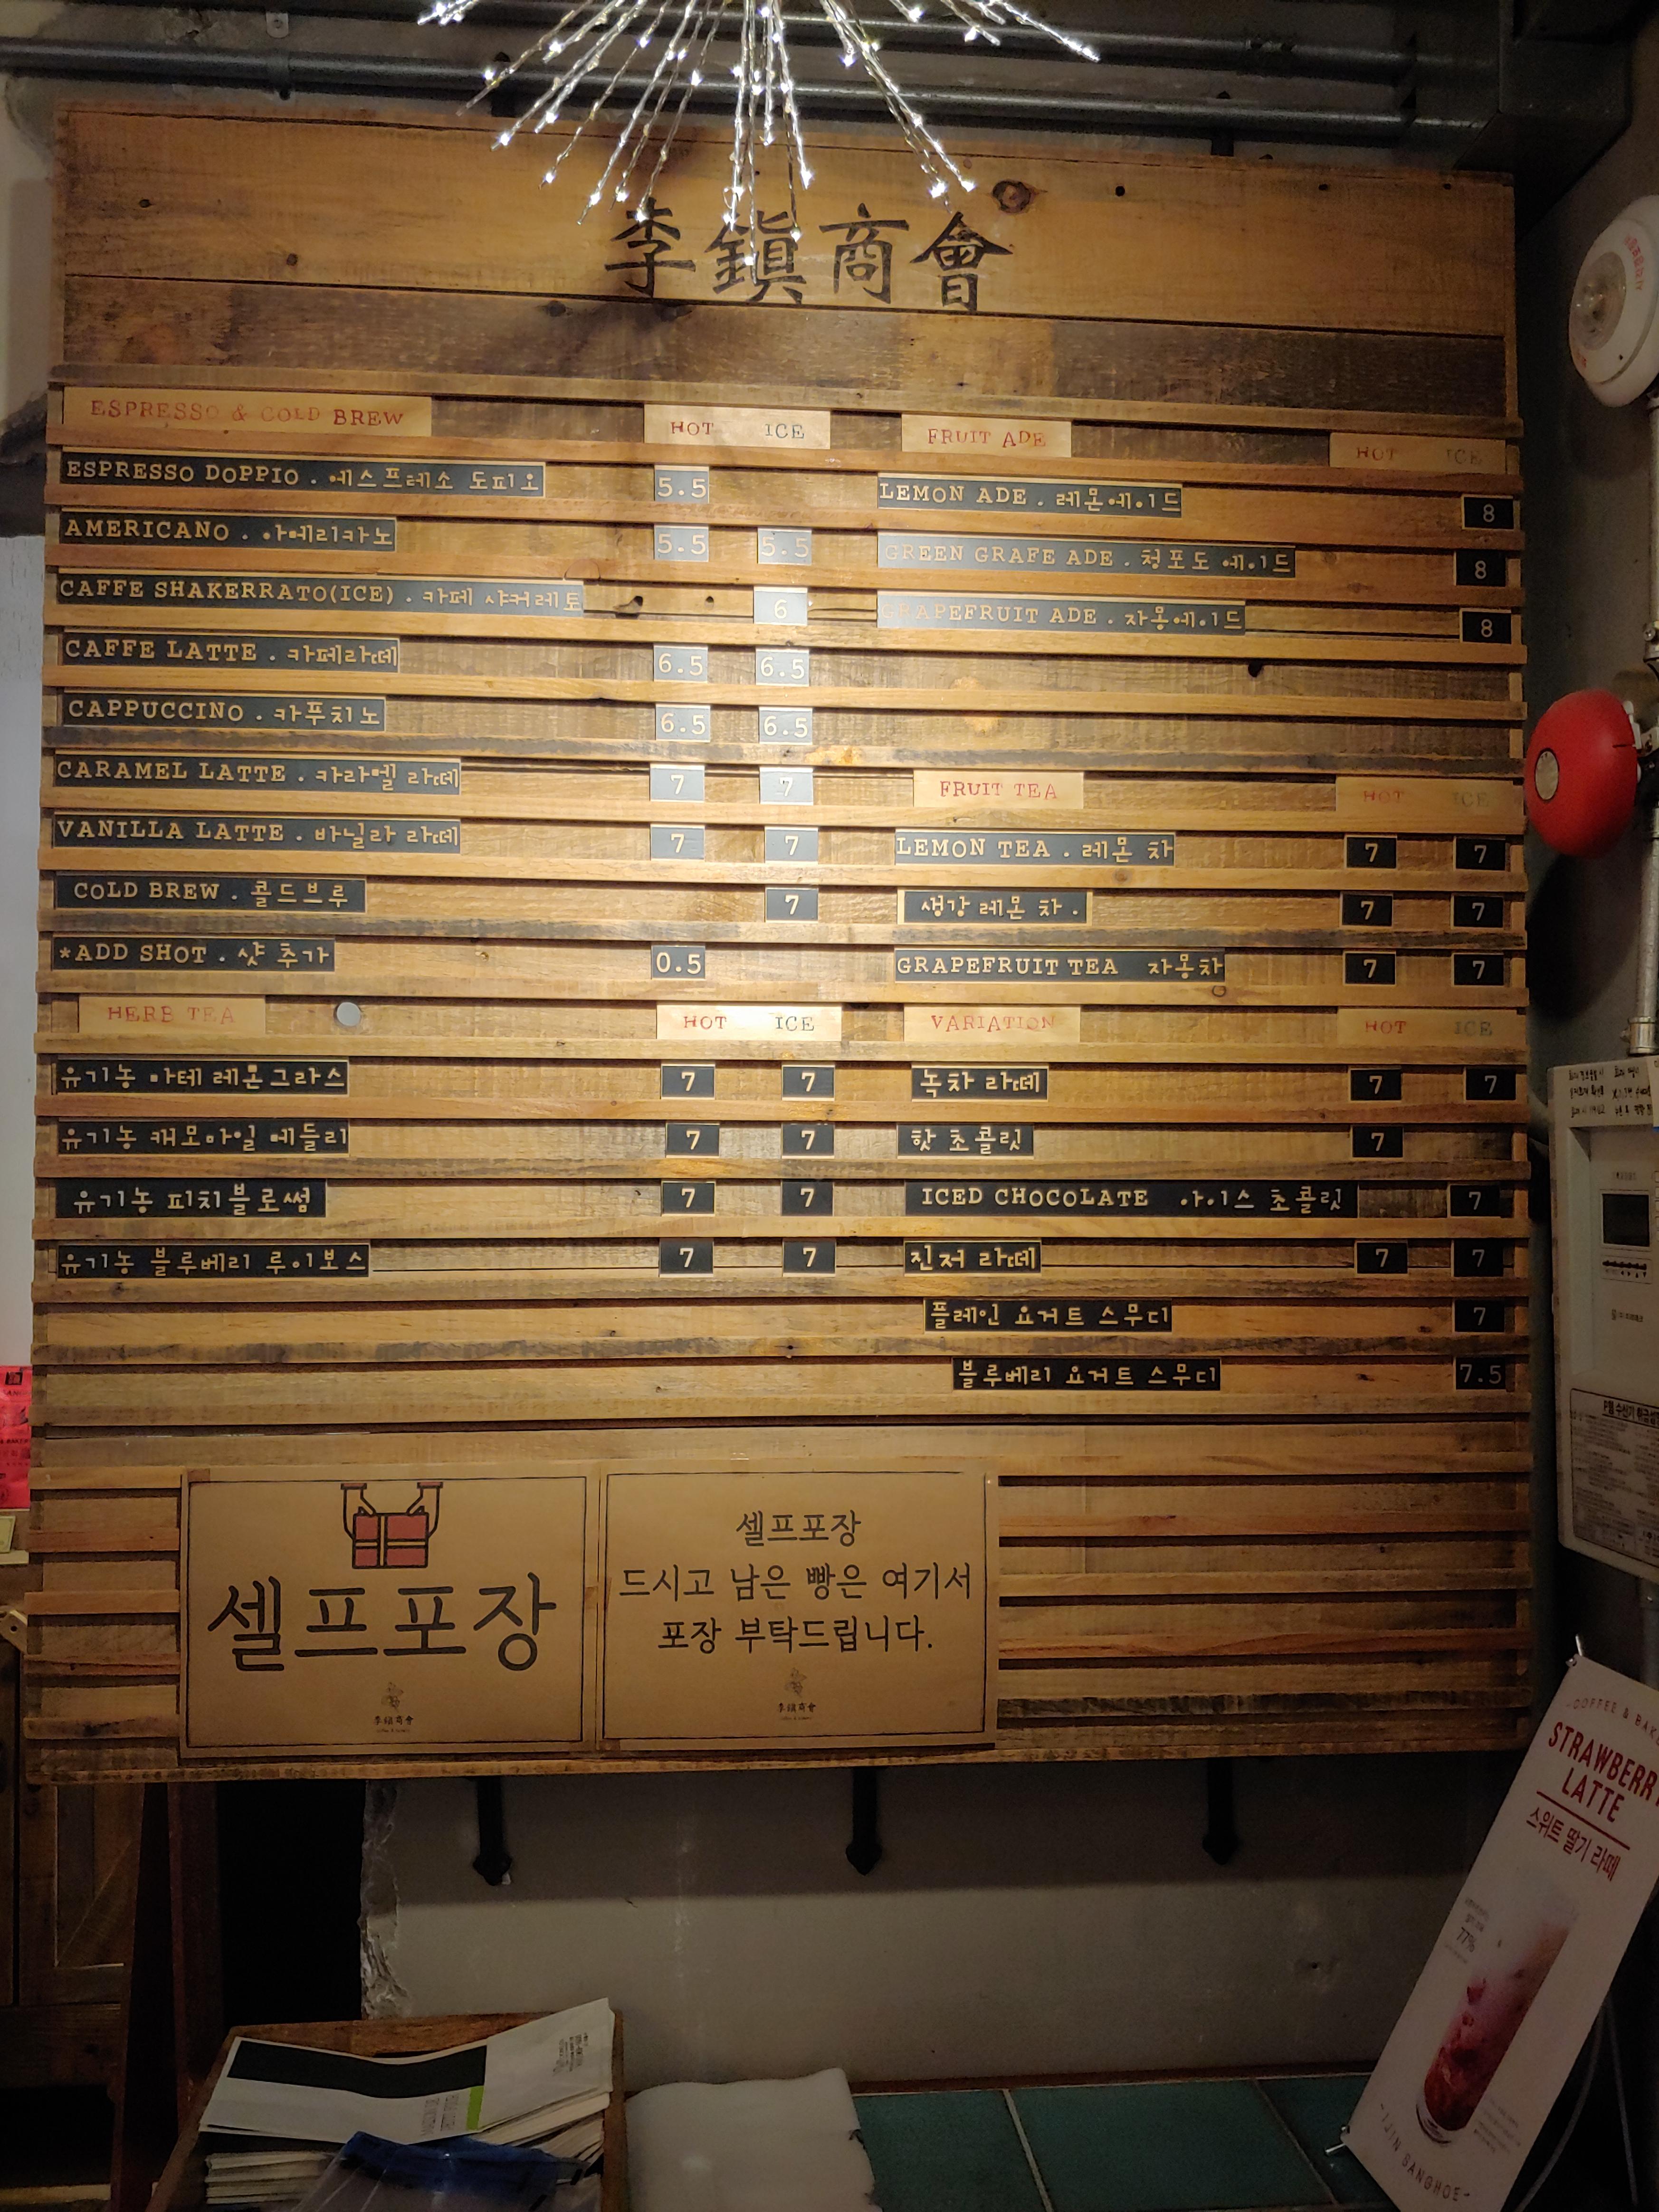 李鎭商會
ESPRESSO & COLD BREW HOT ICE
ESPRESSO DOPPIO . 에스프레소 도피오 5.5
AMERICANO . 아메리카노 5.5 5.5
CAFFE SHAKERRATO(ICE) . 카페 샤커레토 6
CAFFE LATTE . 카페라떼 6.5 6.5
CAPPUCCINO . 카푸치노 6.5 6.5
CARAMEL LATTE . 카라멜 라떼 7 7
VANILLA LATTE . 바닐라 라떼 7 7
COLD BREW . 콜드브루 7
*ADD SHOT . 샷 추가 0.5
HERB TEA HOT ICE
유기농 마테 레몬그라스 7 7
유기농 캐모마일 메들리 7 7
유기농 피치블로썸 7 7
유기농 블루베리 루이보스 7 7
FRUIT ADE HOT ICE
LEMON ADE . 레몬에이드 8
GREEN GRAFE ADE . 청포도 에이드 8
GRAPEFRUIT ADE . 자몽에이드 8
FRUIT TEA HOT ICE
LEMON TEA . 레몬 차 7 7
생강 레몬 차 . 7 7
GRAPEFRUIT TEA 자몽차 7 7
VARIATION HOT ICE
녹차 라떼 7 7
핫 초콜릿 7
ICED CHOCOLATE 아이스 초콜릿 7
진저 라떼 7 7
플레인 요거트 스무디 7
블루베리 요거트 스무디 7.5
셀프포장
李鎭商會
셀프포장
드시고 남은 빵은 여기서
포장 부탁드립니다.
李鎭商會
COFFEE & BAK
STRAWBERRY
LATTE
스위트 딸기 라떼
77%
IJIN SANGHOE